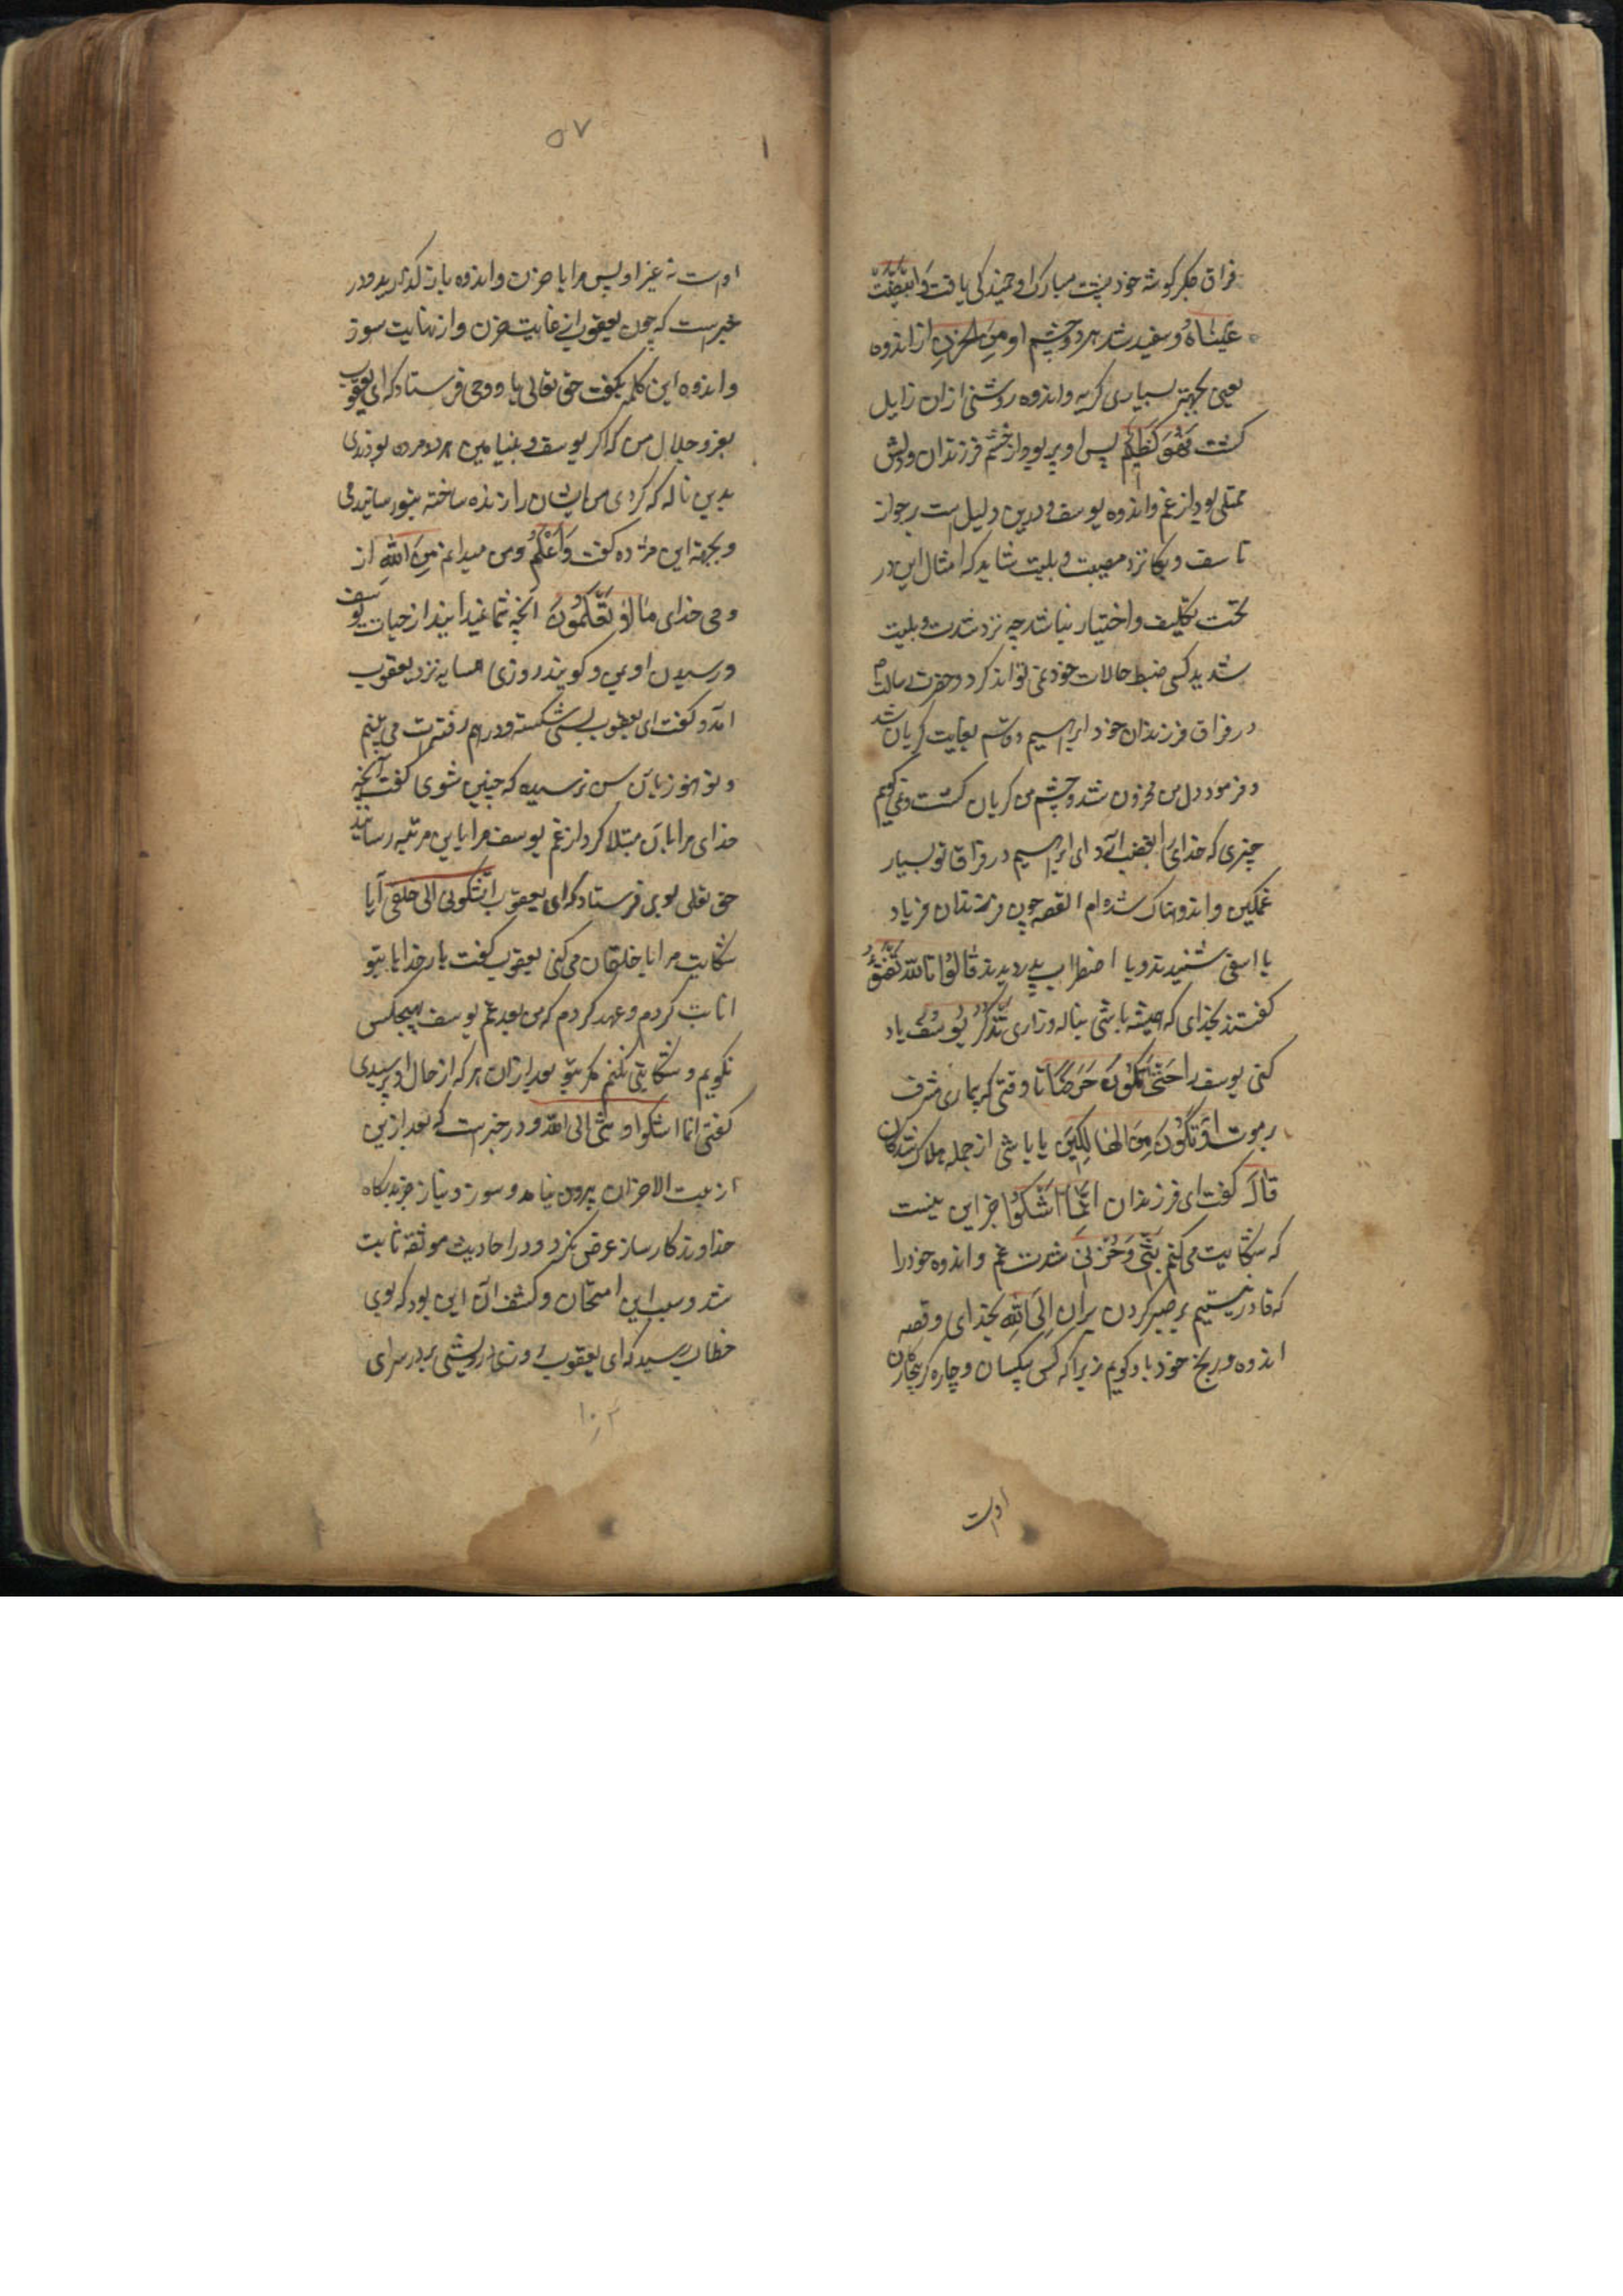 فراق جگر گوشه خود پشت مبارک او خمیدگی یافت وَابْیَضَّتْ
عَیْنَاهُ و سفید شد هر دو چشم او مِنَ الْحُزْنِ از اندوه
یعنی بجهت بسیاری گریه و اندوه روشنی از آن زایل
گشت فَهُوَ کَظِیْمٌ پس او پر بود از خشم فرزندان و دلش
ممتلی بود از غم و اندوه یوسف و درین دلیل است بر جواز
تاسف و بکا نزد مصیبت و بلیت شاید که امثال این در
تحت تکلیف و اختیار نباشد چه نزد شدت و بلیت
شدید کسی ضبط حالات خود نمی تواند کرد و حضرت رسالت
در فراق فرزندان خود ابراهیم و قاسم بغایت گریان شد
و فرمود دل من محزون شد و چشم من گریان گشت و نمی گویم
چیزی که خدای را بغضب آرد ای ابراهیم در فراق تو بسیار
غمگین و اندوهناک شده ام القصه چون فرزندان فریاد
یا اسفی شنیدند و با اضطراب پدر دیدند قَالُوْا تَاللّٰهِ تَفْتَؤُ
گفتند بخدای که همیشه باشی بناله و زاری تَذْکُرُ یُوْسُفَ یاد
کنی یوسف را حَتّٰی تَکُوْنَ حَرَضًا تا وقتی که بیماری مشرف
بر موت اَوْ تَکُوْنَ مِنَ الْهَالِکِیْنَ یا باشی از جمله هلاک شدگان
قَالَ گفت ای فرزندان اِنَّمَا اَشْکُوْا جز این نیست
که شکایت می کنم بَثِّیْ وَحُزْنِیْ شدت غم و اندوه خود را
که قادر نیستیم بر صبر کردن بر آن اِلَی اللّٰهِ بخدای و قصه
اندوه و رنج خود با او گویم زیرا که کس بیکسان و چاره گر بیچارگان
اوست
۵۷
اوست نه غیر او پس مرا با حزن و اندوه باز گذارید و در
خبر است که چون یعقوب از غایت حزن و از نهایت سوز
و اندوه این کلمه بگفت حق تعالی باو وحی فرستاد که ای یعقوب
بعز و جلال من که اگر یوسف و بنیامین هر دو مرده بودندی
بدین ناله که کردی من ایشان را زنده ساخته بتو رسانیدمی
و بجهة این مژده گفت وَاَعْلَمُ و من میدانم مِنَ اللّٰهِ از
وحی خدای مَا لَا تَعْلَمُوْنَ آنچه شما نمیدانید از حیات یوسف
و رسیدن او بمن و گویند روزی همسایه نزد یعقوب
آمد و گفت ای یعقوب بسی شکسته و درهم رفتهات می بینم
و تو هنوز بآن سن نرسیده که چنین شوی گفت آنچه
خدای مرا بآن مبتلا کرد از غم یوسف مرا باین مرتبه رسانید
حق تعلی بوی فرستاد که ای یعقوب اتشکونی الی خلقی آیا
شکایت مرا با خلقان می کنی یعقوب گفت بار خدایا بتو
انابت کردم و عهد کردم که من بعد غم یوسف بهیچکس
نگویم و شکایتی نکنم مگر بتو بعد از آن هر که از حال او پرسیدی
گفتی انما اشکوا بثی الی الله و در خبر است که بعد ازین
از بیت الاحزان بیرون نیامد و سوز و نیاز جز بدرگاه
خداوند کارساز عرض نکرد و در احادیث موثقه ثابت
شد و سبب این امتحان و کشف آن این بود که بوی
خطاب رسید که ای یعقوب روزی درویشی بر در سرای
۱۰۲